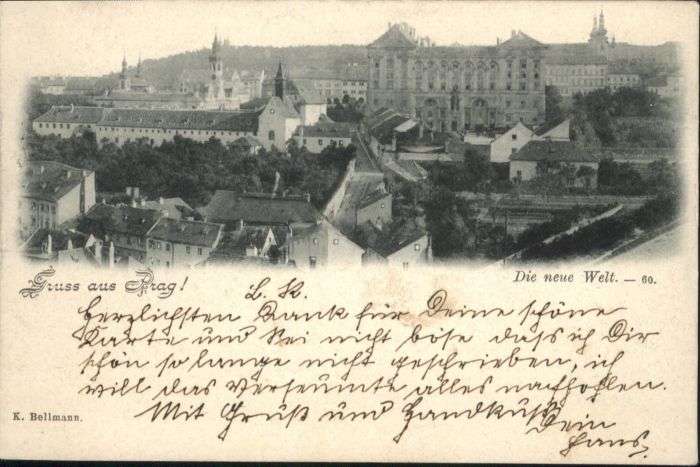 Gruss aus Prag!
Die neue Welt. — 60.
L. K.
herzlichsten Dank für Deine schöne
Karte und sei nicht böse daß ich Dir
schön so lange nicht geschrieben, ich
will das Verseumte alles nachhohlen.
Mit Gruß und Handkuß
Dein
Hans
K. Bellmann.